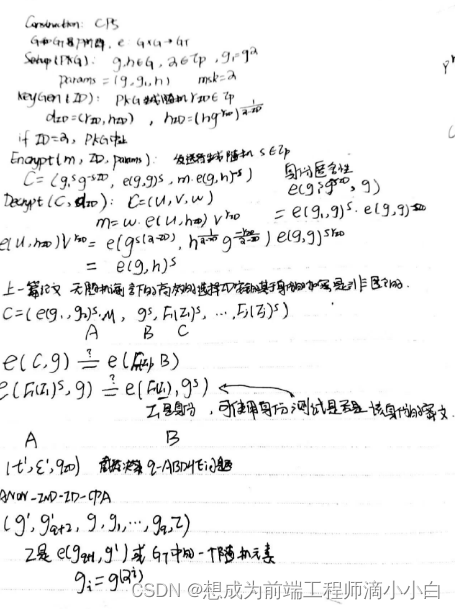 Construction: CPS
G和GT是p阶群, e: G×G→GT
Setup(PKG): g,h∈G, α∈Zp, g₁=g^α
params=(g,g₁,h) msk=α
KeyGen(ID): PKG生成随机 r_ID∈Zp
d_ID=(r_ID,h_ID), h_ID=(hg^{-r_ID})^{1/(α-ID)}
if ID=α, PKG中止
Encrypt(m,ID,params): 发送方生成随机 s∈Zp
C=(g₁^s g^{-s·ID}, e(g,g)^s, m·e(g,h)^{-s})
Decrypt(C,d_ID): C=(u,v,w)
m=w·e(u,h_ID)v^{r_ID}
身份匿名性
e(g₁^s g^{-s·ID}, g)
= e(g₁,g)^s·e(g,g)^{-s·ID}
e(u,h_ID)v^{r_ID}=e(g^{s(α-ID)}, h^{1/(α-ID)} g^{-r_ID/(α-ID)}) e(g,g)^{s r_ID}
= e(g,h)^s
上一篇论文 无随机 的 的选择 基于身份的加密 是非匿名的.
C=(e(g₁,g₂)^s·M, g^s, F₁(Z₁)^s, …, F₁(Z)^s)
A B C
e(C,g) ≟ e(F₁(Z₁),B)
e(F₁(Z₁)^s,g) ≟ e(F₁(Z₁),g^s)
Z₁是身份, 可使用身份测试是否是该身份的密文.
A B
(t',ε',q_ID) 解决 q-ABDHE问题
ANON-IND-ID-CPA
(g', g'_{q+2}, g, g₁, …, g_q, Z)
Z是e(g_{q+1},g')或GT中的一个随机元素
g_i=g^{(α^i)}
CSDN @想成为前端工程师滴小小白